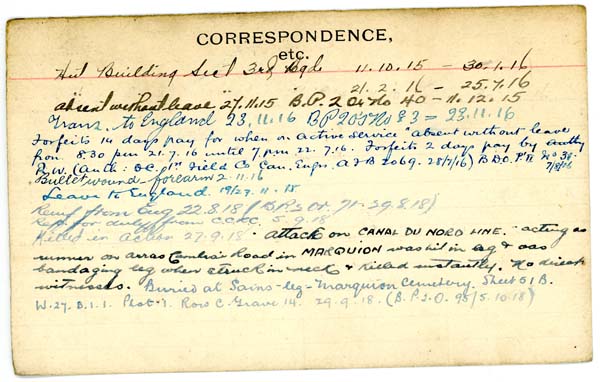 CORRESPONDENCE,
etc.
Hut Building Sect 3rd Bgde 11.10.15 — 30.1.16
21.2.16 — 25.7.16
absent without leave 27.11.15 B.P.2 Or No 40 — 11.12.15
Trans. to England 23.11.16 BP2OSNo 83 = 28.11.16
Forfeits 14 days pay for when on active service "absent without leave
from 8.30 pm 21.7.16 until 7 pm 22.7.16. Forfeits 2 days pay by
R.W. (Auth: O.C. 1st Field Co Can. Engrs. A.F.B 2069. 28/7/16) B.D.O. Pt II No 36
7/8/16
Bullet wound forearm 2.11.16
Leave to England 11.15
from Eng 22.8.18 (B.P.2 Or. 71-29.8.18)
Rept for duty from CCRC. 5.9.18
Killed in Action 27.9.18. attack on CANAL DU NORD LINE. acting as
runner on Arras Cambrai Road in MARQUION was hit in leg & was
bandaging leg when struck in neck & killed instantly. No direct
witnesses. Buried at Sains-leg-Marquion Cemetery. Sheet 51 B.
W.27. B.1.1. Plot 1. Row C. Grave 14. 29.9.18. (B.P.2.O. 95/5.10.18)